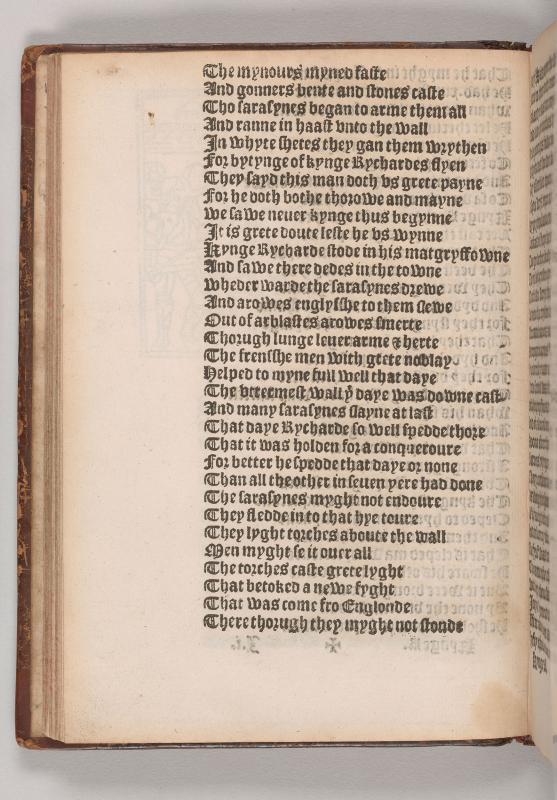 The mynours myned faste
And gonners bente and stones caste
Tho sarasynes began to arme them all
And ranne in haast vnto the wall
In whyte shetes they gan them wrythen
For bytynge of kynge Rychardes flyen
They sayd this man doth vs grete payne
For he doth bothe thorowe and mayne
We sawe neuer kynge thus begynne
It is grete doute leste he vs wynne
Kynge Rycharde stode in his matgryffowne
And sawe there dedes in the towne
wheder warde the sarasynes drewe
And arowes englysshe to them slewe
Out of arblastes arowes smerte
Thorugh lunge leuer arme & herte
The frensshe men with grete noblay
Helped to myne full well that daye
The vttermest wall yͭ daye was downe cast
And many sarasynes slayne at last
That daye Rycharde so well spedde thore
That it was holden for a conqueroure
For better he spedde that daye or none
Than all the other in seuen yere had done
The sarasynes myght not endoure
They fledde in to that hye toure
They lyght torches aboute the wall
Men myght se it ouer all
The torches caste grete lyght
That betoked a newe fyght
That was come fro Englonde
There thorugh they myght not stonde